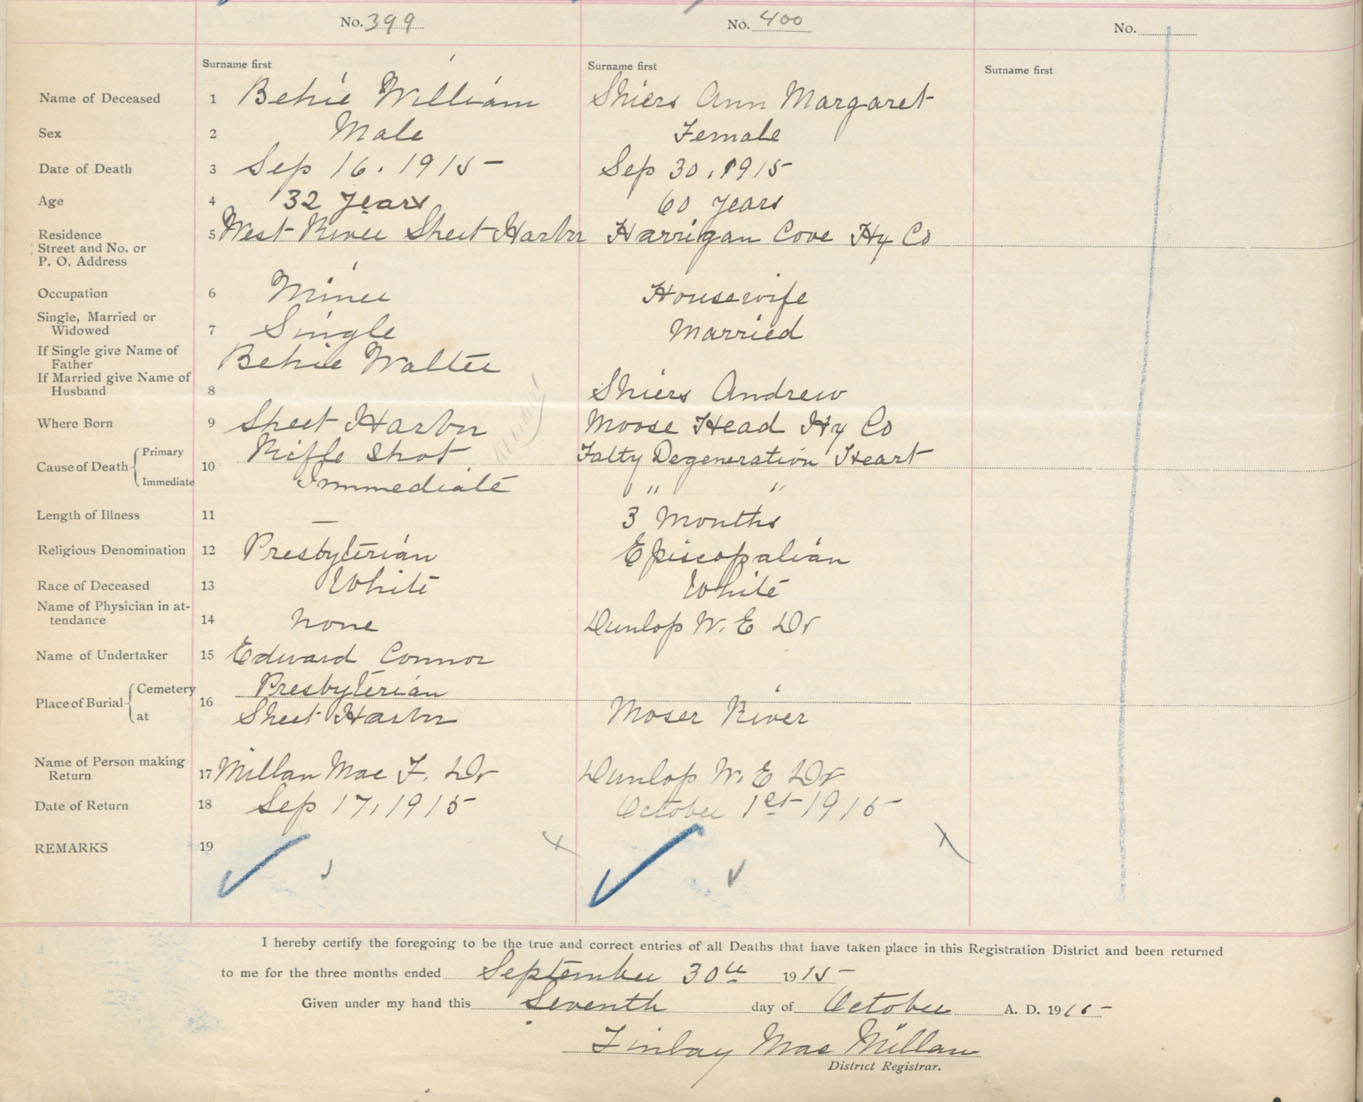 No. 399 No. 400 No.
Surname first Surname first Surname first
Name of Deceased 1 Behie William Shiers Ann Margaret
Sex 2 Male Female
Date of Death 3 Sep 16. 1915 Sep 30, 1915
Age 4 32 years 60 years
Residence 5 West River Sheet Harbor Harrigan Cove Hx Co
Street and No. or
P. O. Address
Occupation 6 Miner Housewife
Single, Married or
Widowed 7 Single Married
If Single give Name of
Father Behie Walter
If Married give Name of
Husband 8 Shiers Andrew
Where Born 9 Sheet Harbor Moose Head Hx Co
Cause of Death Primary 10 Riffe Shot Fatty Degeneration Heart
Immediate Immediate " "
Length of Illness 11 — 3 Months
Religious Denomination 12 Presbyterian Episcopalian
Race of Deceased 13 White White
Name of Physician in at-
tendance 14 none Dunlop W. E Dr
Name of Undertaker 15 Edward Connor
Place of Burial Cemetery 16 Presbyterian
at Sheet Harbor Moser River
Name of Person making
Return 17 Millan Mac F. Dr Dunlop W. E Dr
Date of Return 18 Sep 17, 1915 October 1st 1915
REMARKS 19
I hereby certify the foregoing to be the true and correct entries of all Deaths that have taken place in this Registration District and been returned
to me for the three months ended September 30th 1915
Given under my hand this Seventh day of October A. D. 1915
Finlay Mac Millan
District Registrar.